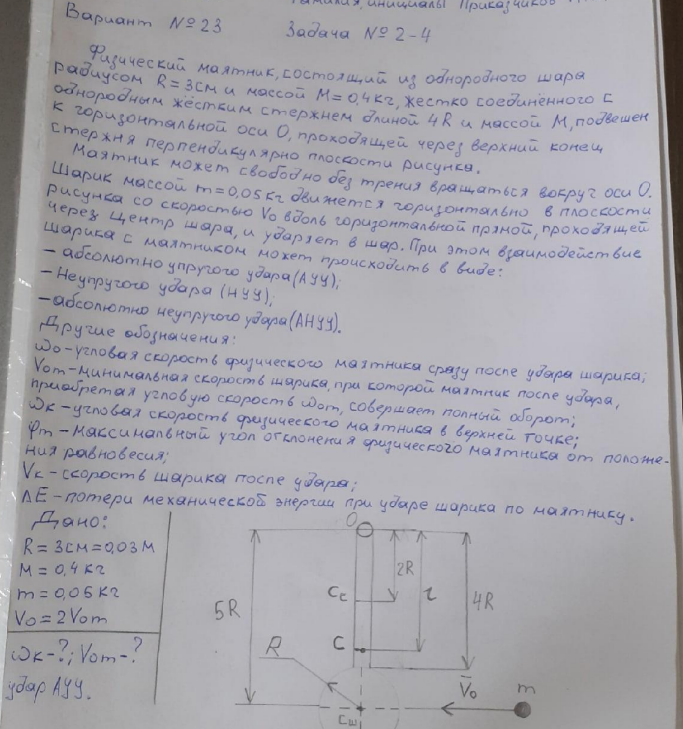 Фамилия, инициалы Приказчиков
Вариант №23 Задача №2-4
Физический маятник, состоящий из однородного шара
радиусом R=3см и массой M=0,4кг, жестко соединённого с
однородным жёстким стержнем длиной 4R и массой M, подвешен
к горизонтальной оси О, проходящей через верхний конец
стержня перпендикулярно плоскости рисунка.
Маятник может свободно без трения вращаться вокруг оси О.
Шарик массой m=0,05кг движется горизонтально в плоскости
рисунка со скоростью V₀ вдоль горизонтальной прямой, проходящей
через центр шара, и ударяет в шар. При этом взаимодействие
шарика с маятником может происходить в виде:
- абсолютно упругого удара (АУУ);
- Неупругого удара (НУУ);
- абсолютно неупругого удара (АНУУ).
Другие обозначения:
ω₀ - угловая скорость физического маятника сразу после удара шарика;
V₀m - минимальная скорость шарика, при которой маятник после удара,
приобретая угловую скорость ω₀m, совершает полный оборот;
ωк - угловая скорость физического маятника в верхней точке;
φm - максимальный угол отклонения физического маятника от положе-
ния равновесия;
Vк - скорость шарика после удара;
ΔE - потери механической энергии при ударе шарика по маятнику.
Дано:
R=3см=0,03м
M=0,4кг
m=0,05кг
V₀=2V₀m
ωк-?; V₀m-?
удар АУУ.
O
2R
Cc
l
4R
5R
C
R
V̄₀
m
Cш